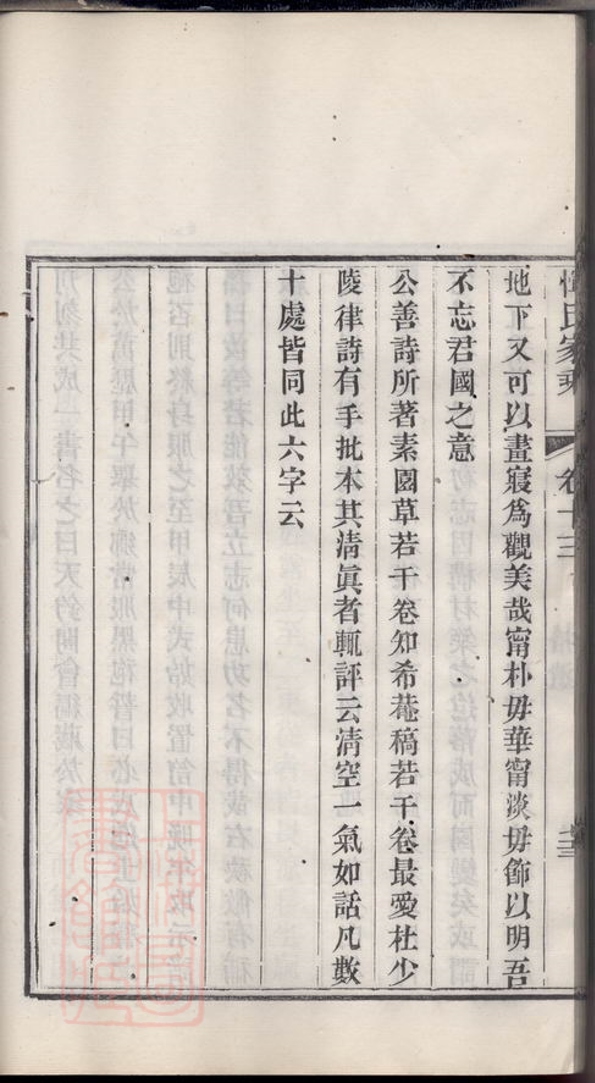 惲氏家乘 卷十三
地下又可以畫寢爲觀美哉甯朴毋華甯淡毋飾以明吾
不忘君國之意
公善詩所著素園草若干卷知希菴稿若干卷最愛杜少
陵律詩有手批本其清眞者輒評云清空一氣如話凡數
十處皆同此六字云